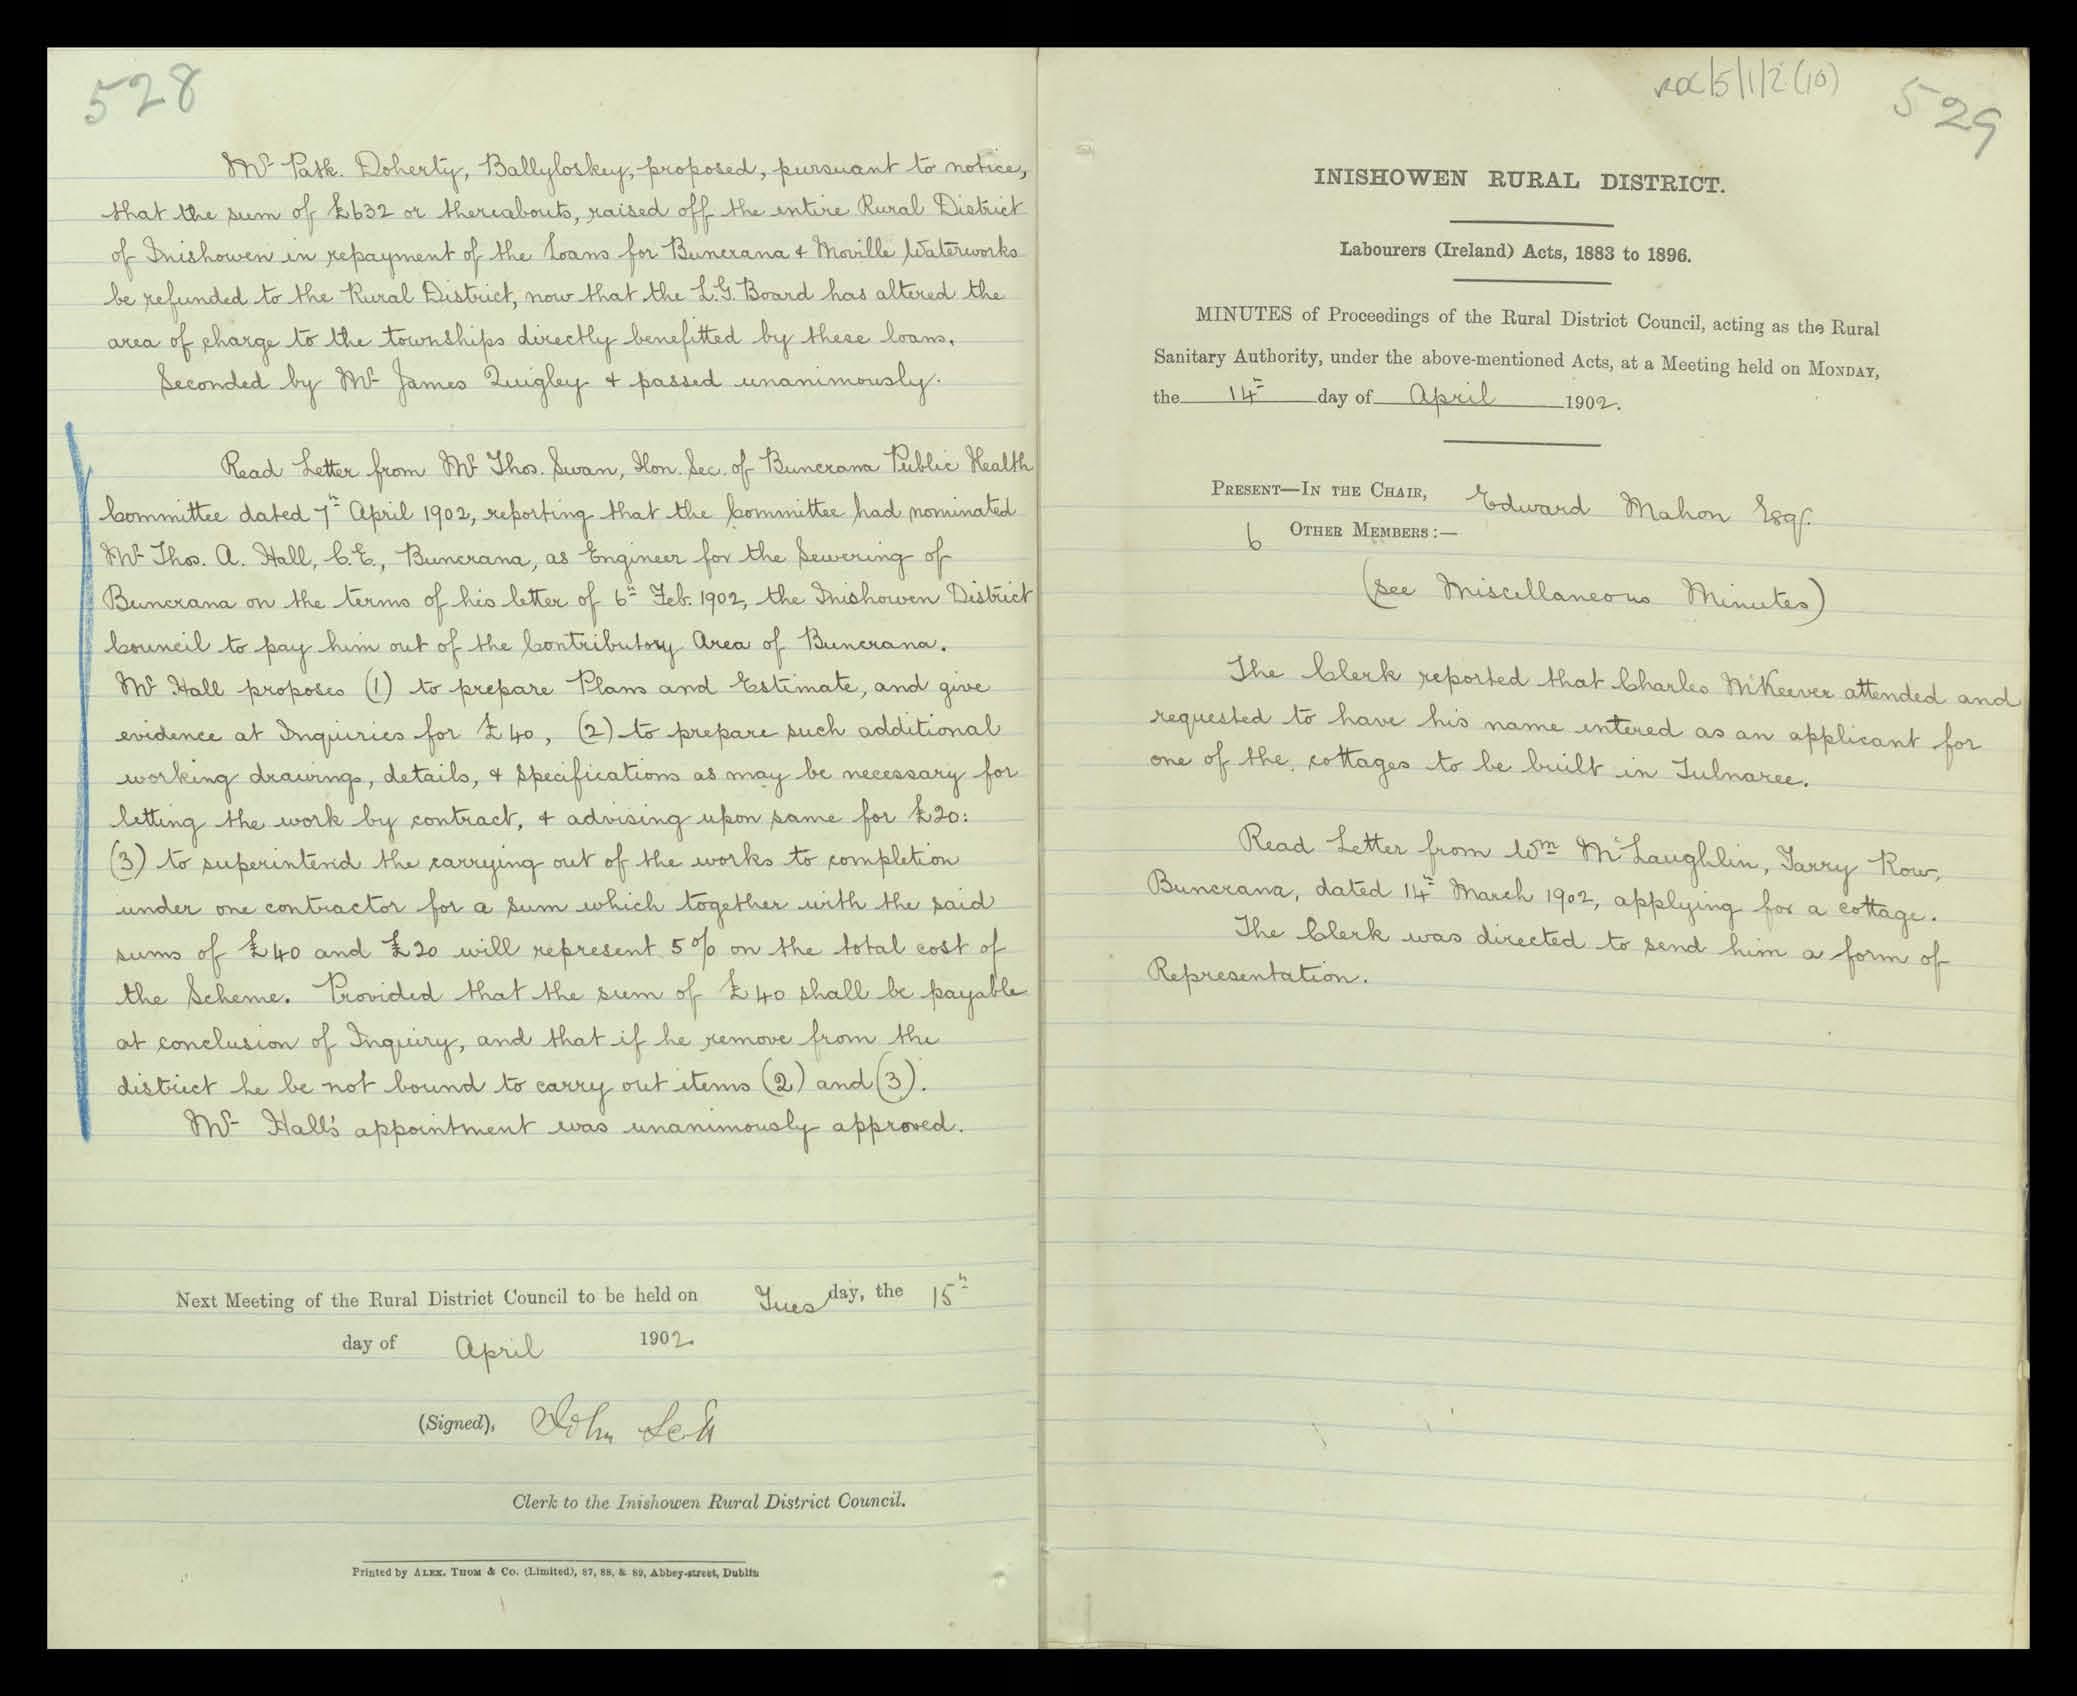 528
Mr Patk. Doherty, Ballyloskey, proposed, pursuant to notice,
that the sum of £632 or thereabouts, raised off the entire Rural District
of Inishowen in repayment of the Loans for Buncrana & Moville Waterworks
be refunded to the Rural District, now that the L.G. Board has altered the
area of charge to the townships directly benefitted by these loans.
Seconded by Mr James Quigley & passed unanimously.
Read Letter from Mr Thos. Swan, Hon. Sec. of Buncrana Public Health
Committee dated 7th April 1902, reporting that the Committee had nominated
Mr Thos. A. Hall, C.E., Buncrana, as Engineer for the Sewering of
Buncrana on the terms of his letter of 6th Feb. 1902, the Inishowen District
Council to pay him out of the Contributory Area of Buncrana.
Mr Hall proposes (1) to prepare Plans and Estimate, and give
evidence at Inquiries for £40, (2) to prepare such additional
working drawings, details, & specifications as may be necessary for
letting the work by contract, & advising upon same for £20:
(3) to superintend the carrying out of the works to completion
under one contractor for a sum which together with the said
sums of £40 and £20 will represent 5% on the total cost of
the Scheme. Provided that the sum of £40 shall be payable
at conclusion of Inquiry, and that if he remove from the
district he be not bound to carry out items (2) and (3).
Mr Hall's appointment was unanimously approved.
Next Meeting of the Rural District Council to be held on Tuesday, the 15th
day of April 1902.
(Signed), John
Clerk to the Inishowen Rural District Council.
Printed by ALEX. THOM & Co. (Limited), 87, 88, & 89, Abbey-street, Dublin
RDC/5/1/2(10)
529
INISHOWEN RURAL DISTRICT.
Labourers (Ireland) Acts, 1883 to 1896.
MINUTES of Proceedings of the Rural District Council, acting as the Rural
Sanitary Authority, under the above-mentioned Acts, at a Meeting held on MONDAY,
the 14th day of April 1902.
PRESENT—IN THE CHAIR, Edward Mahon Esqr.
6 OTHER MEMBERS:—
(see Miscellaneous Minutes)
The Clerk reported that Charles McKeever attended and
requested to have his name entered as an applicant for
one of the cottages to be built in Tulnaree.
Read Letter from Wm McLaughlin, Tarry Row,
Buncrana, dated 14th March 1902, applying for a cottage.
The Clerk was directed to send him a form of
Representation.